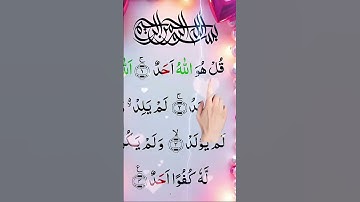 بسم الله الرحمن الرحيم
قُلْ هُوَ اللّٰهُ اَحَدٌ ۚ ﴿۱﴾ اَللّٰ
دُ ۚ ﴿۲﴾ لَمْ يَلِدْ
لَمْ يُوْلَدْ ۙ ﴿۳﴾ وَلَمْ يَكُ
لَّهٗ كُفُوًا اَحَدٌ ﴿۴﴾